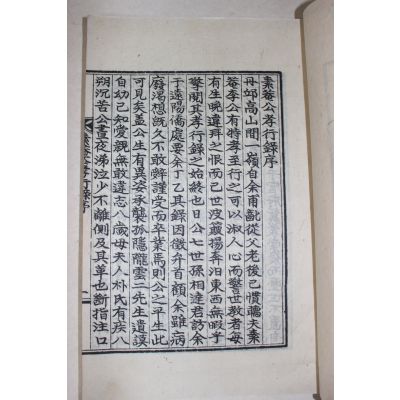 素菴公孝行錄序
丹邱高山間一嶺自余甫齔從父老後已慣聽夫素
菴李公有特孝至行之可以淑人心而警世敎者每
有生晩違拜之恨而已世沒簸揚奔汨東西無暇乎
擊閱其孝行錄之始終也日公七世孫相達君訪余
于遠陽僑處要余丁乙其錄因徵弁首顧余雖病
廢渴想旣久不敢辭謹受而卒業焉則公之平生此
可見矣盖公生有異姿承襲孤隱隴雲二先生遺謨
自幼已知愛親無敢違志八歲母夫人朴氏有疾八
朔沉苦公晝夜涕泣少不離側及其革也斷指注口
素菴公孝行錄序
一